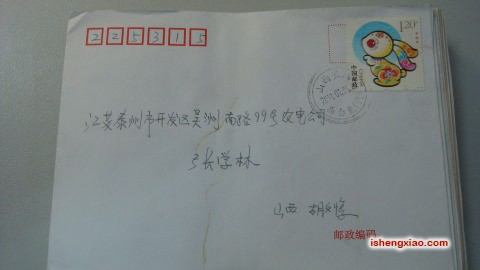 225315
1.20元
中国邮政
江苏泰州市开发区吴洲南路99号农电公司
张学林
山西 胡
邮政编码
ishengxiao.com